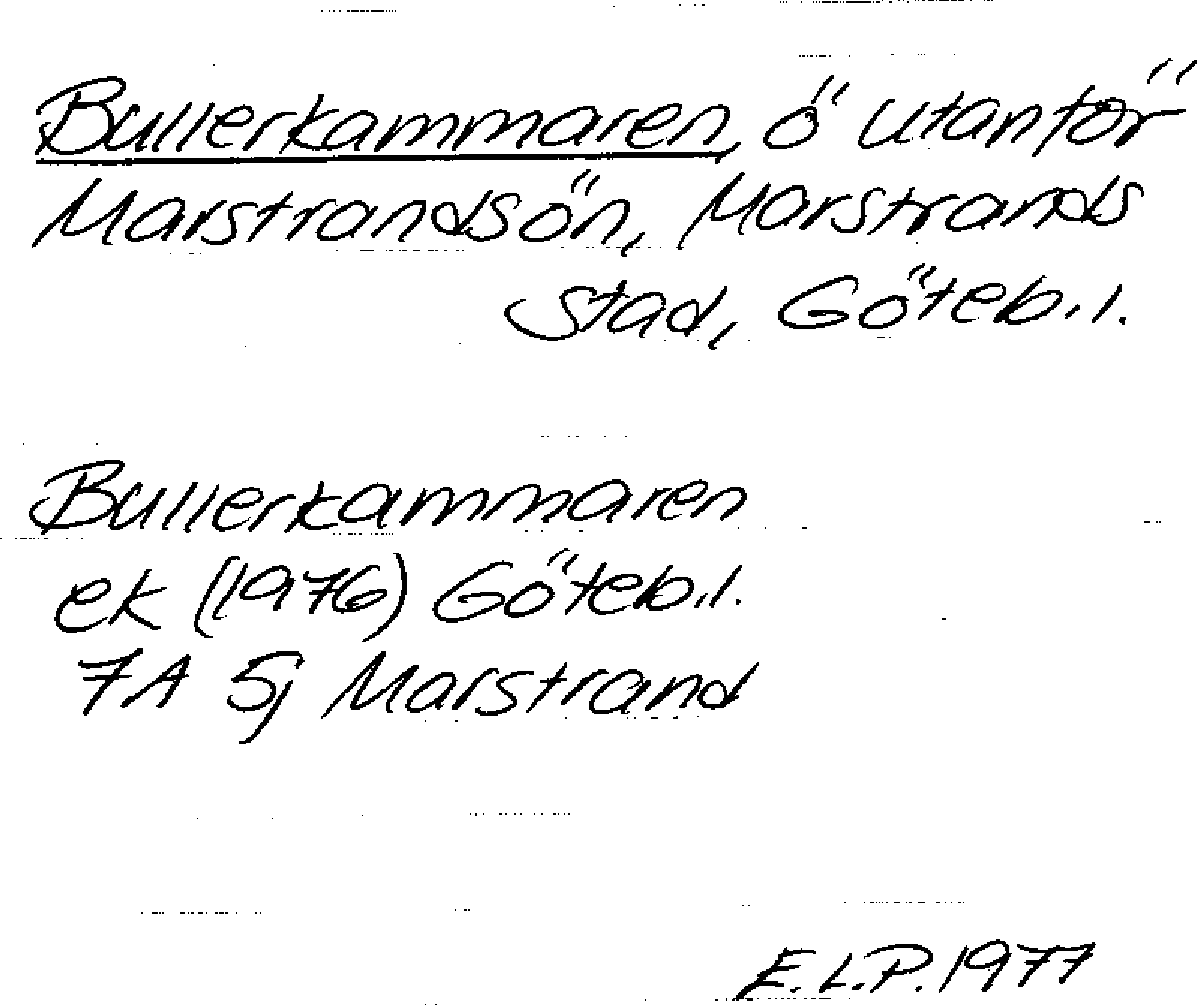 Bullerkammaren, ö utanför
Marstrandsön, Marstrands
stad, Göteb.l.
Bullerkammaren
ek (1976) Göteb.l.
7A 5j Marstrand
E.L.P. 1977